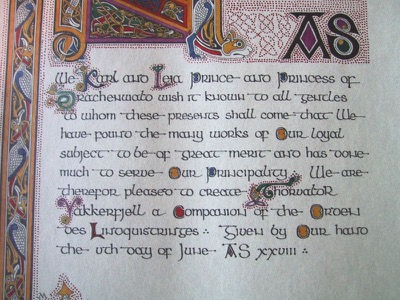 AS
We Karl and Leia Prince and Princess of
Drachenwald wish it known to all gentles
to whom these presents shall come that We
have found the many works of Our loyal
subject to be of great merit and has done
much to serve Our Principality We are
therefor pleased to create Thorvator
Yakkerfjell a Companion of the Orden
des Lindquistringes Given by Our hand
the day of June AS XXVIII